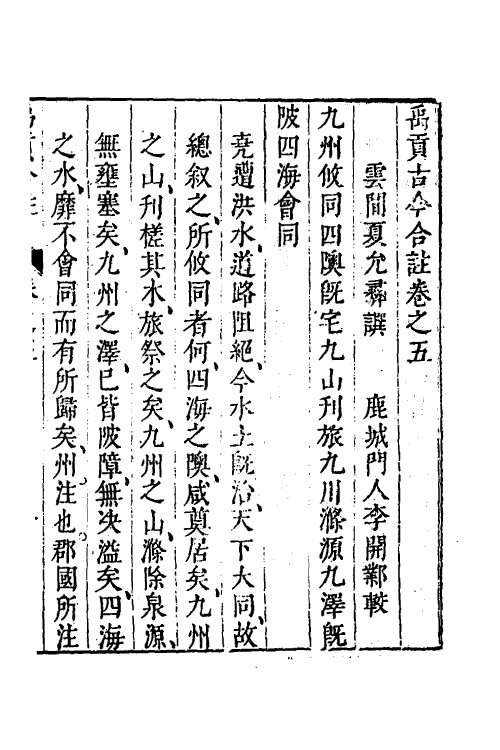 禹貢古今合註卷之五
雲間夏允彝譔　鹿城門人李開鄴較
九州攸同四隩旣宅九山刊旅九川滌源九澤旣
陂四海會同
堯遭洪水道路阻絕今水土旣治天下大同故
總叙之所攸同者何四海之隩咸奠居矣九州
之山刊槎其木旅祭之矣九州之山滌除泉源
無壅塞矣九州之澤巳皆陂障無决溢矣四海
之水靡不會同而有所歸矣州注也郡國所注